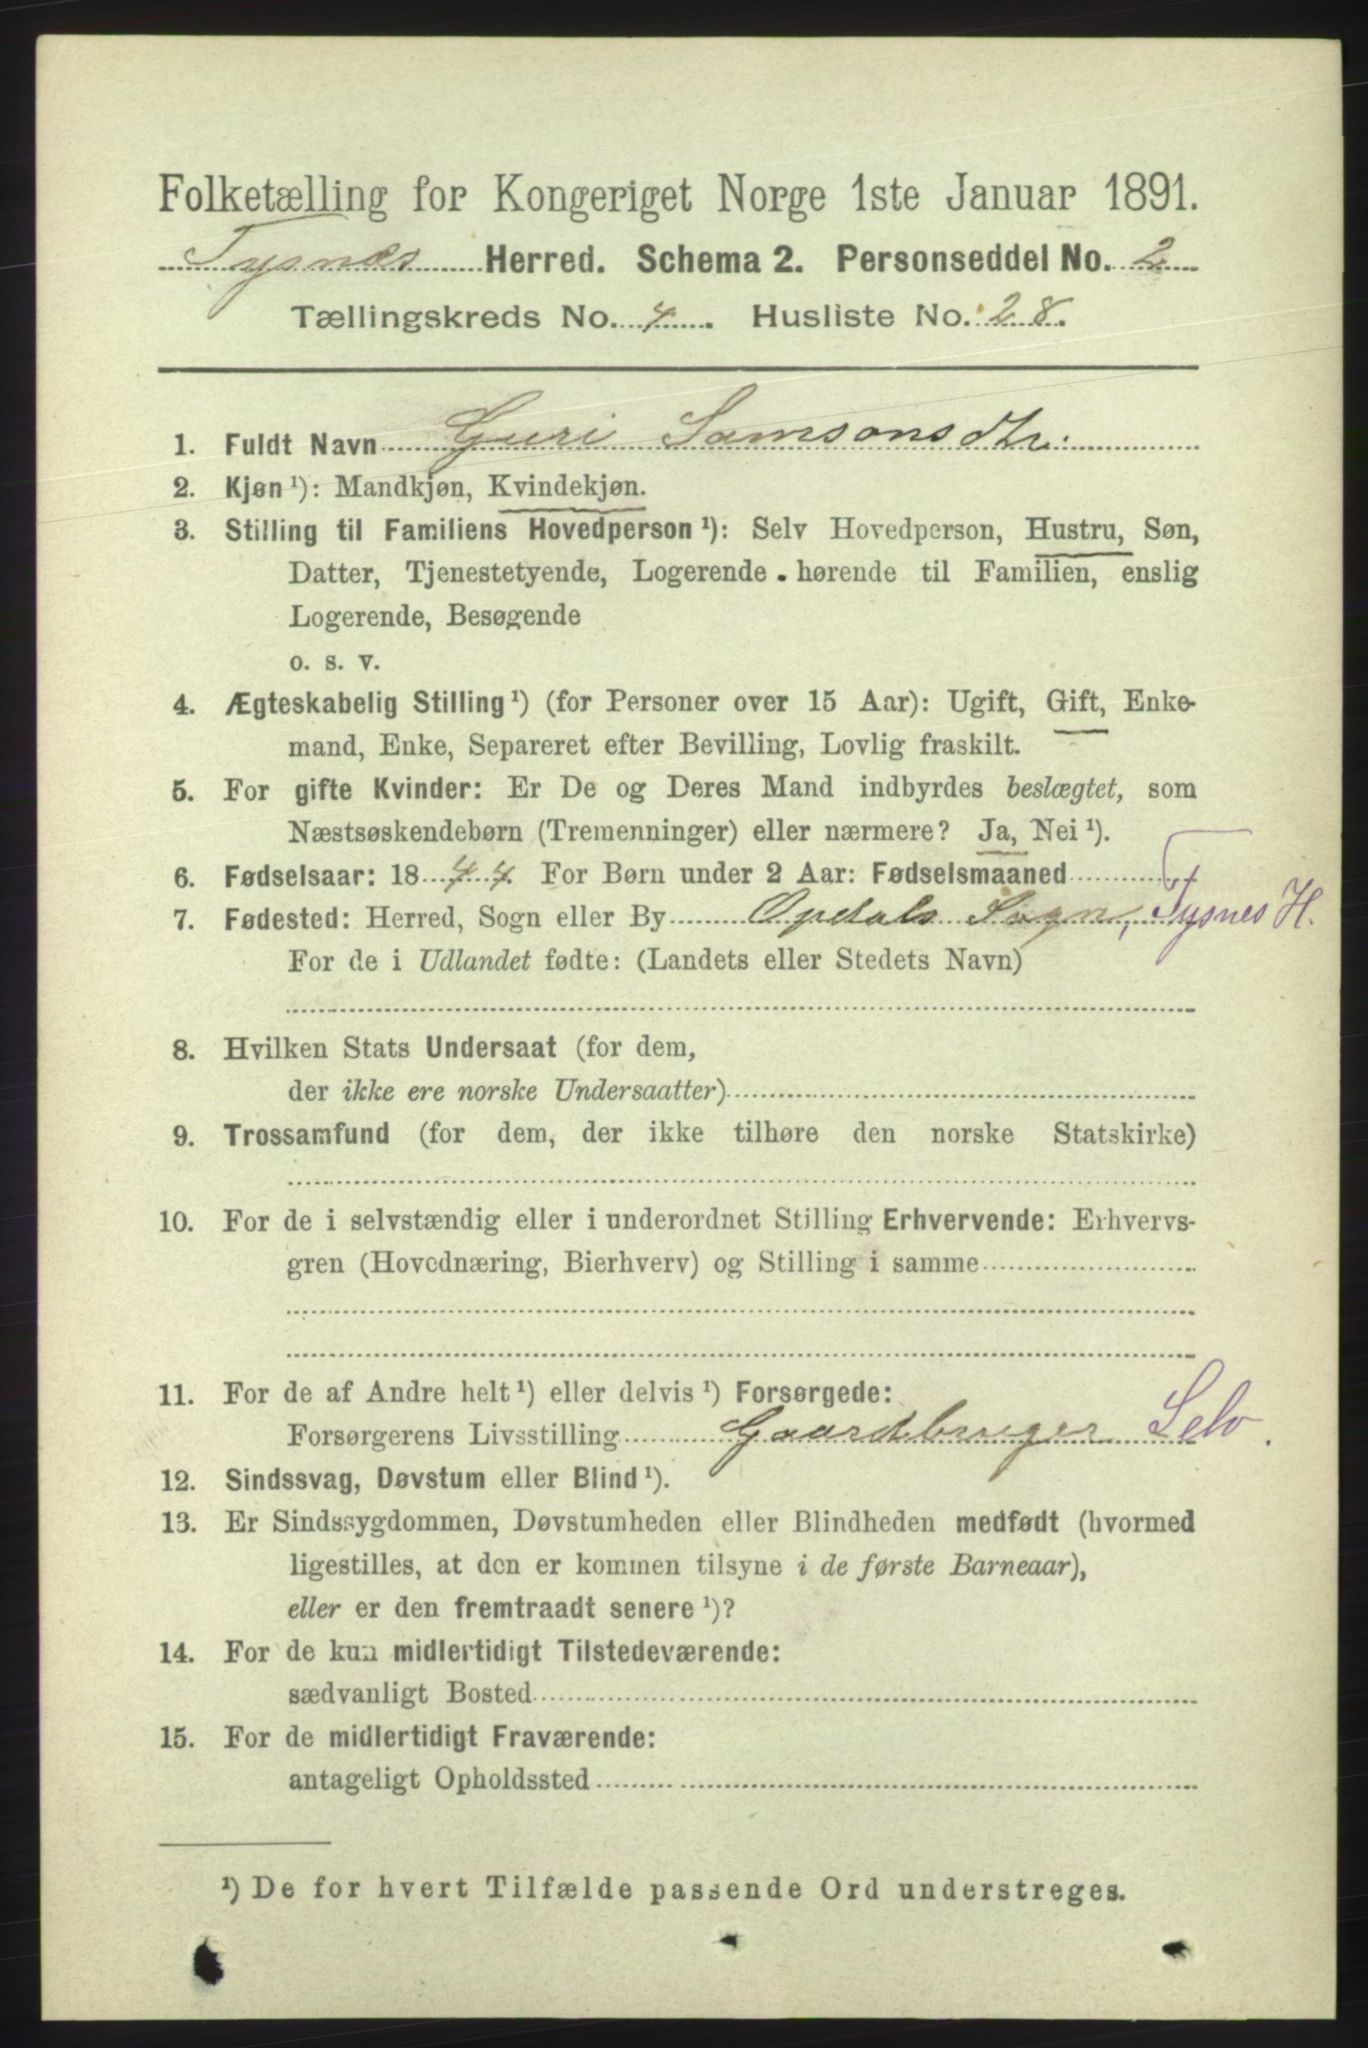 Folketælling for Kongeriget Norge 1ste Januar 1891.
Tysnæs Herred. Schema 2. Personseddel No. 2
Tællingskreds No. 4. Husliste No. 28.
1. Fuldt Navn Guri Samsonsdtr.
2. Kjøn¹): Mandkjøn, Kvindekjøn.
3. Stilling til Familiens Hovedperson¹): Selv Hovedperson, Hustru, Søn,
Datter, Tjenestetyende, Logerende hørende til Familien, enslig
Logerende, Besøgende
o. s. v.
4. Ægteskabelig Stilling¹) (for Personer over 15 Aar): Ugift, Gift, Enke-
mand, Enke, Separeret efter Bevilling, Lovlig fraskilt.
5. For gifte Kvinder: Er De og Deres Mand indbyrdes beslægtet, som
Næstsøskendebørn (Tremenninger) eller nærmere? Ja, Nei¹).
6. Fødselsaar: 1844. For Børn under 2 Aar: Fødselsmaaned
7. Fødested: Herred, Sogn eller By Opdals Sogn, Tysnes H.
For de i Udlandet fødte: (Landets eller Stedets Navn)
8. Hvilken Stats Undersaat (for dem,
der ikke ere norske Undersaatter)
9. Trossamfund (for dem, der ikke tilhøre den norske Statskirke)
10. For de i selvstændig eller i underordnet Stilling Erhvervende: Erhvervs-
gren (Hovednæring, Bierhverv) og Stilling i samme
11. For de af Andre helt¹) eller delvis¹) Forsørgede:
Forsørgerens Livsstilling Gaardbruger Selv.
12. Sindssvag, Døvstum eller Blind¹).
13. Er Sindssygdommen, Døvstumheden eller Blindheden medfødt (hvormed
ligestilles, at den er kommen tilsyne i de første Barneaar),
eller er den fremtraadt senere¹)?
14. For de kun midlertidigt Tilstedeværende:
sædvanligt Bosted
15. For de midlertidigt Fraværende:
antageligt Opholdssted
¹) De for hvert Tilfælde passende Ord understreges.